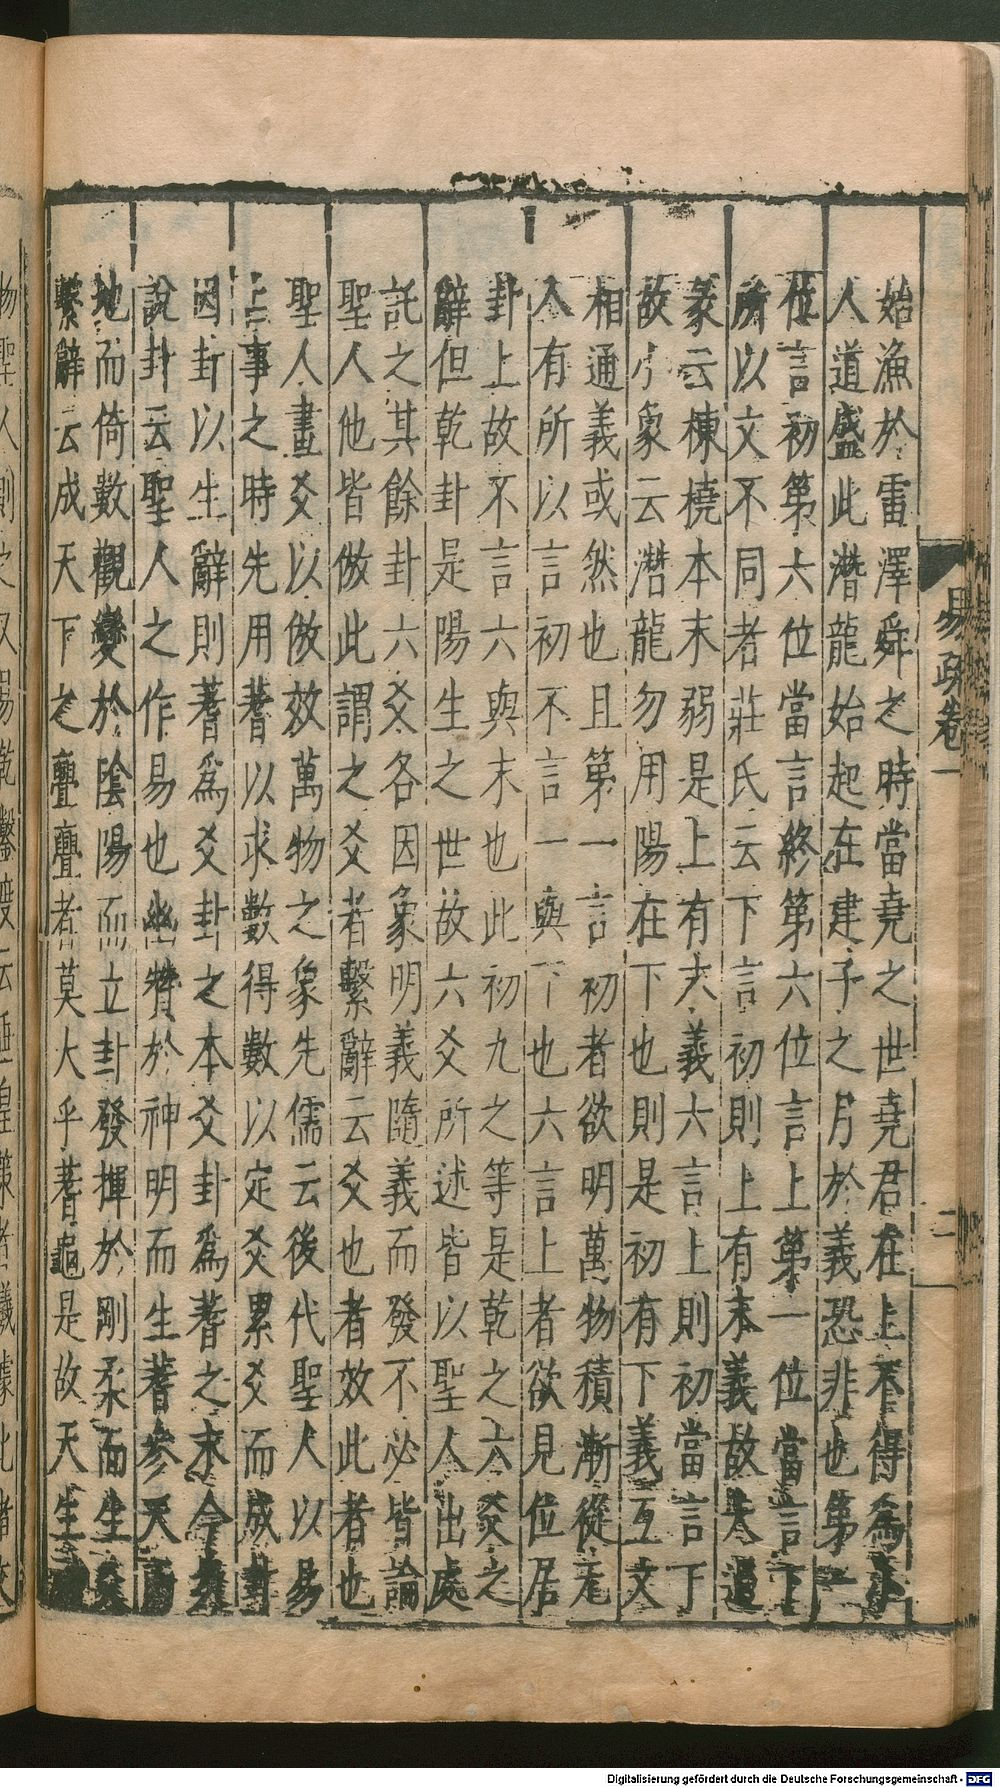 始漁於雷澤舜之時當堯之世堯君在上不得爲小
人道盛此潛龍始起在建子之月於義恐非也第一
位言初第六位當言終第六位言上第一位當言下
所以文不同者莊氏云下言初則上有末義故大過
彖云棟橈本末弱是上有末義六言上則初當言下
故小象云潛龍勿用陽在下也則是初有下義互文
相通義或然也且第一言初者欲明萬物積漸從无
入有所以言初不言一與下也六言上者欲見位居
卦上故不言六與末也此初九之等是乾之六爻之
辭但乾卦是陽生之世故六爻所述皆以聖人出處
託之其餘卦六爻各因象明義隨義而發不必皆論
聖人他皆倣此謂之爻者繫辭云爻也者效此者也
聖人畫爻以倣效萬物之象先儒云後代聖人以易
占事之時先用蓍以求數得數以定爻累爻而成卦
因卦以生辭則蓍爲爻卦之本爻卦爲蓍之末今案
說卦云聖人之作易也幽贊於神明而生蓍參天兩
地而倚數觀變於陰陽而立卦發揮於剛柔而生爻
繫辭云成天下之亹亹者莫大乎蓍龜是故天生
易疏卷一
二
Digitalisierung gefördert durch die Deutsche Forschungsgemeinschaft - DFG